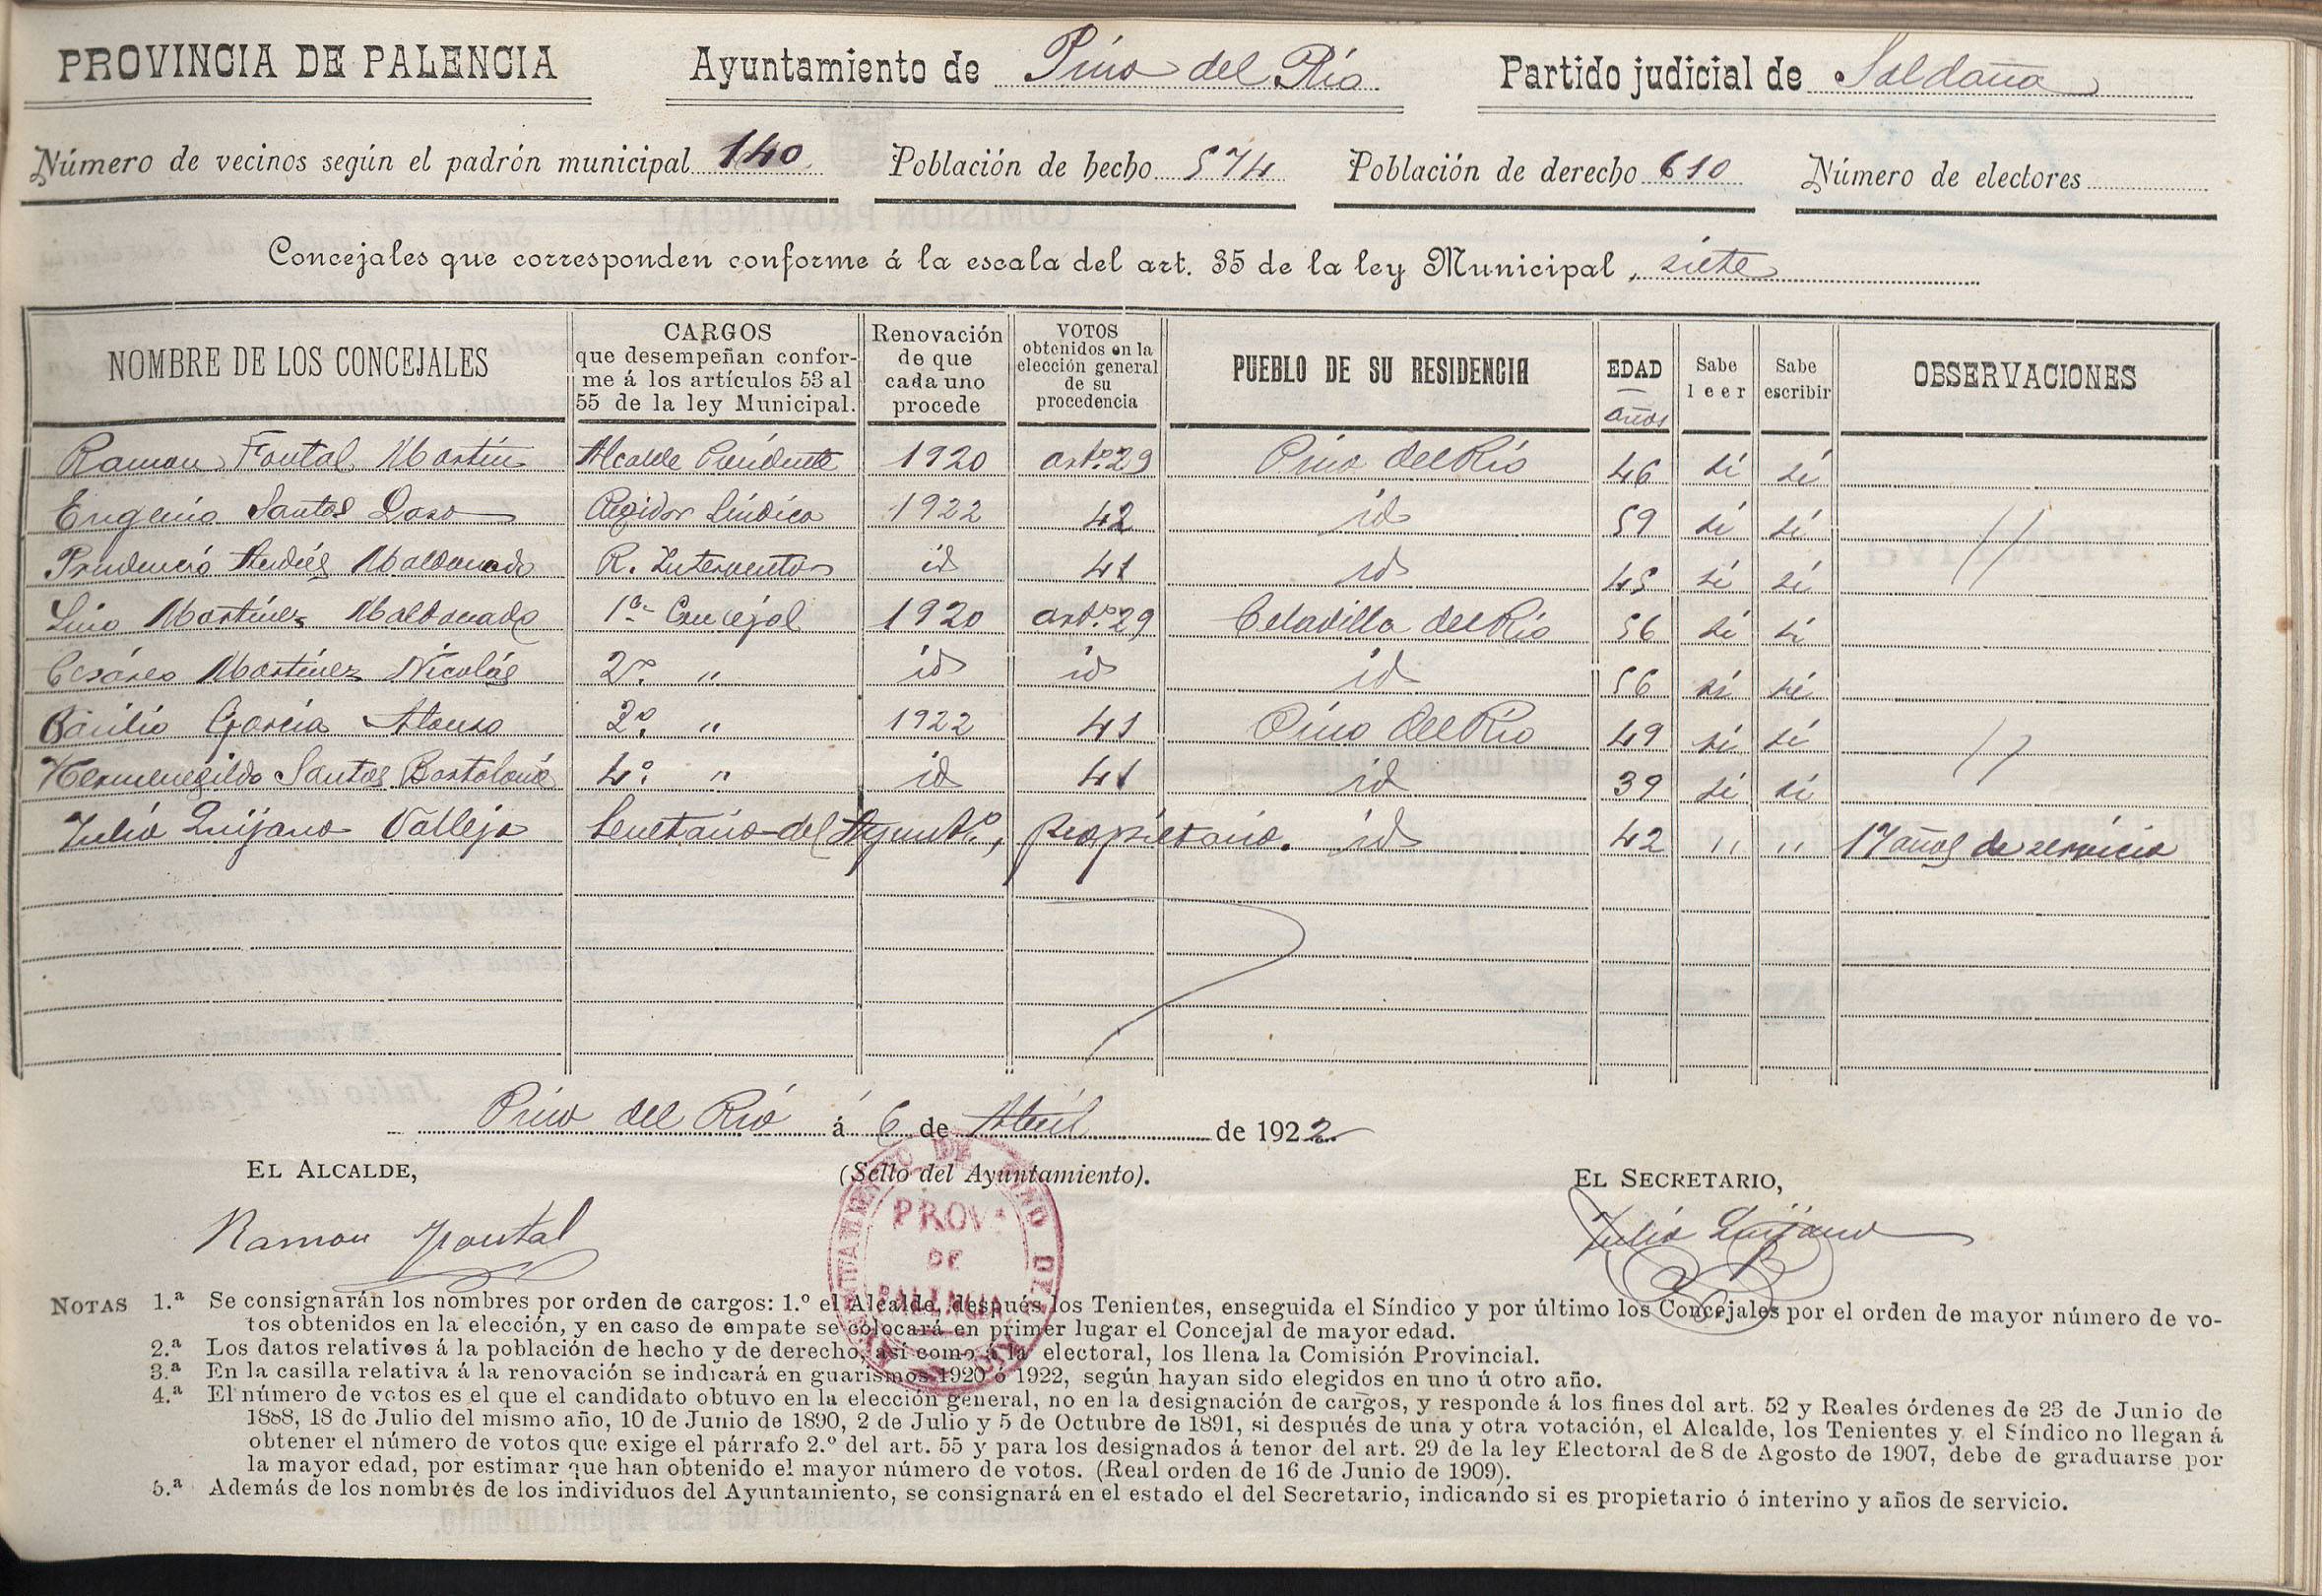 PROVINCIA DE PALENCIA Ayuntamiento de Pino del Río Partido judicial de Saldaña
Número de vecinos según el padrón municipal 140 Población de hecho 574 Población de derecho 610 Número de electores
Concejales que corresponden conforme á la escala del art. 35 de la ley Municipal, siete
NOMBRE DE LOS CONCEJALES
CARGOS
que desempeñan confor-
me á los artículos 53 al
55 de la ley Municipal.
Renovación
de que
cada uno
procede
VOTOS
obtenidos en la
elección general
de su
procedencia
PUEBLO DE SU RESIDENCIA
EDAD
años
Sabe
leer
Sabe
escribir
OBSERVACIONES
Ramon Fontal Martin Alcalde Presidente 1920 artº. 29 Pino del Río 46 si si
Eugenio Santos Daso Regidor Síndico 1922 42 id 59 si si //
Prudencio Andrés Maldonado R. Interventor id 41 id 45 si si
Lino Martínez Maldonado 1er Concejal 1920 artº. 29 Celadilla del Río 56 si si
Cesáreo Martínez Nicolás 2º. " id id id 56 si si
Basilio García Alonso 3º. " 1922 41 Pino del Río 49 si si //
Hermenegildo Santos Bartolomé 4º. " id 41 id 39 si si
Julio Quijano Vallejo Secretario del Ayuntº, propietario. id 42 " " 17 años de servicio
Pino del Río á 6 de Abril de 1922
EL ALCALDE, (Sello del Ayuntamiento). EL SECRETARIO,
Ramon Fontal
Julio Quijano
PROVA
DE
PALENCIA
NOTAS 1.ª Se consignarán los nombres por orden de cargos: 1.º el Alcalde, después los Tenientes, enseguida el Síndico y por último los Concejales por el orden de mayor número de vo-
tos obtenidos en la elección, y en caso de empate se colocará en primer lugar el Concejal de mayor edad.
2.ª Los datos relativos á la población de hecho y de derecho, así como á la electoral, los llena la Comisión Provincial.
3.ª En la casilla relativa á la renovación se indicará en guarismos 1920 ó 1922, según hayan sido elegidos en uno ú otro año.
4.ª El número de votos es el que el candidato obtuvo en la elección general, no en la designación de cargos, y responde á los fines del art. 52 y Reales órdenes de 23 de Junio de
1888, 18 de Julio del mismo año, 10 de Junio de 1890, 2 de Julio y 5 de Octubre de 1891, si después de una y otra votación, el Alcalde, los Tenientes y el Síndico no llegan á
obtener el número de votos que exige el párrafo 2.º del art. 55 y para los designados á tenor del art. 29 de la ley Electoral de 8 de Agosto de 1907, debe de graduarse por
la mayor edad, por estimar que han obtenido el mayor número de votos. (Real orden de 16 de Junio de 1909).
5.ª Además de los nombres de los individuos del Ayuntamiento, se consignará en el estado el del Secretario, indicando si es propietario ó interino y años de servicio.